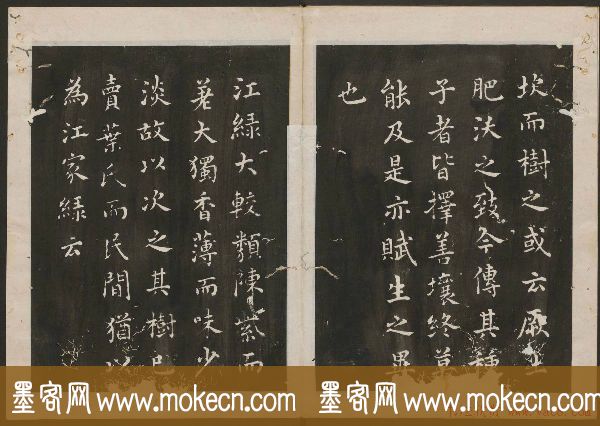 坎而樹之或云厥土
肥沃之致今傳其種
子者皆擇善壤終莫
能及是亦賦生之異
也
江綠大較類陳紫而
差大獨香薄而味少
淡故以次之其樹已
賣葉氏而民間猶以
為江家綠云
墨客网 www.mokecn.com 墨客网 www.mokecn.com